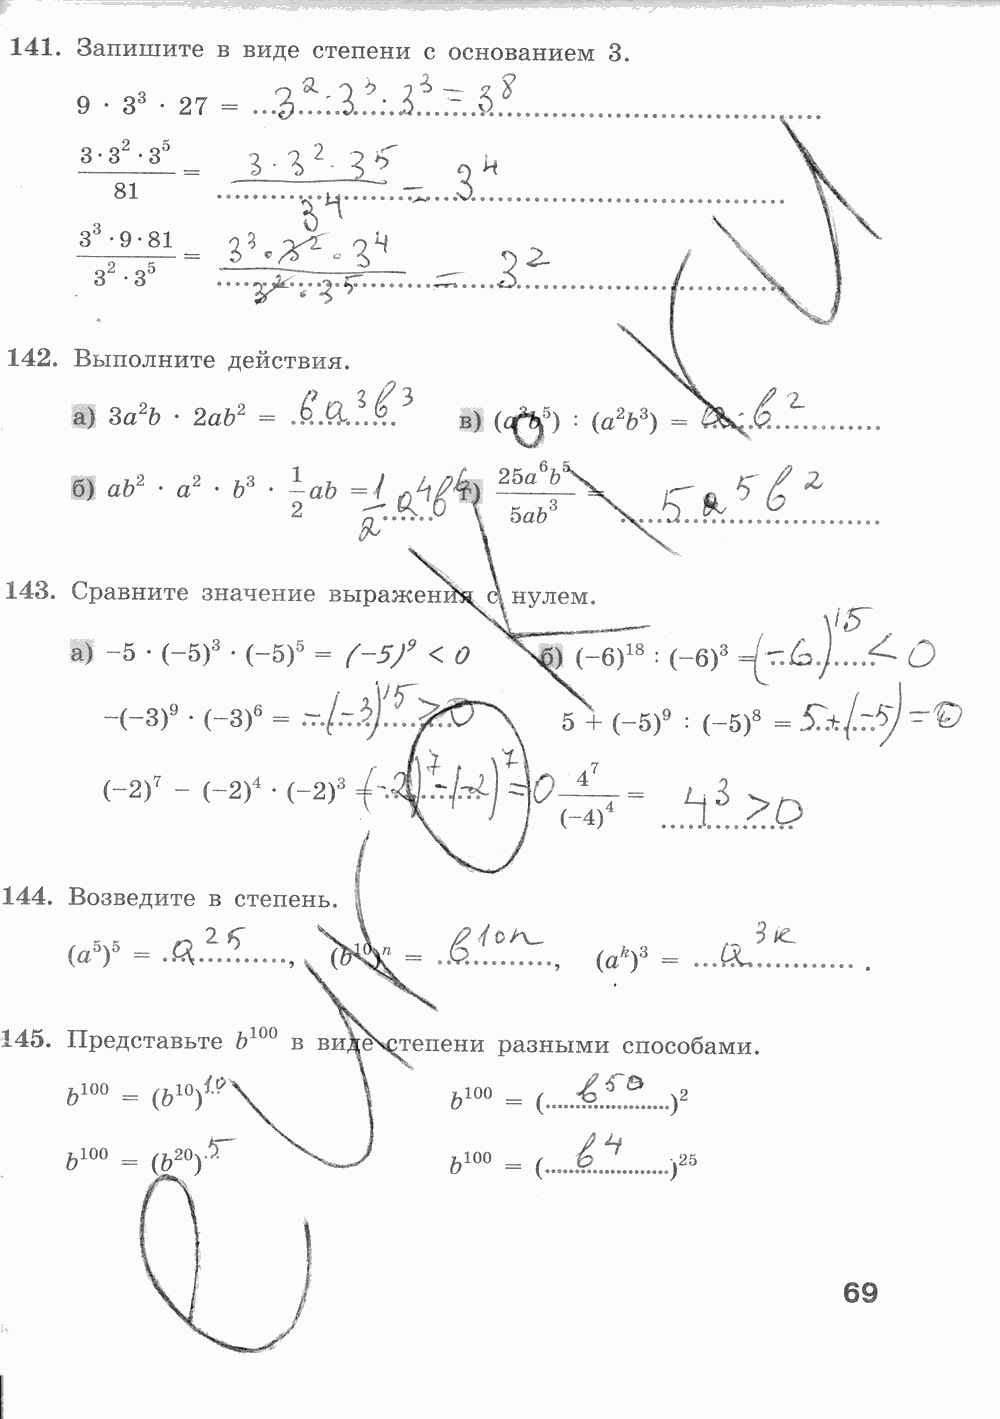 141. Запишите в виде степени с основанием 3.
9 · 3³ · 27 = 3² · 3³ · 3³ = 3⁸
3·3²·3⁵ / 81 = 3 · 3² · 3⁵ / 3⁴ = 3⁴
3³·9·81 / 3²·3⁵ = 3³ · 3² · 3⁴ / 3² · 3⁵ = 3²
142. Выполните действия.
а) 3a²b · 2ab² = 6a³b³ в) (a³b⁵) : (a²b³) = a·b²
б) ab² · a² · b³ · 1/2 ab = 1/2 a⁴b⁶ г) 25a⁶b⁵ / 5ab³ = 5a⁵b²
143. Сравните значение выражения с нулем.
а) −5 · (−5)³ · (−5)⁵ = (−5)⁹ < 0 б) (−6)¹⁸ : (−6)³ = (−6)¹⁵ < 0
−(−3)⁹ · (−3)⁶ = −(−3)¹⁵ > 0 5 + (−5)⁹ : (−5)⁸ = 5+(−5) = 0
(−2)⁷ − (−2)⁴ · (−2)³ = (−2)⁷ − (−2)⁷ = 0 4⁷ / (−4)⁴ = 4³ > 0
144. Возведите в степень.
(a⁵)⁵ = a²⁵, (b¹⁰)ⁿ = b¹⁰ⁿ, (aᵏ)³ = a³ᵏ.
145. Представьте b¹⁰⁰ в виде степени разными способами.
b¹⁰⁰ = (b¹⁰)¹⁰ b¹⁰⁰ = (b⁵⁰)²
b¹⁰⁰ = (b²⁰)⁵ b¹⁰⁰ = (b⁴)²⁵
69